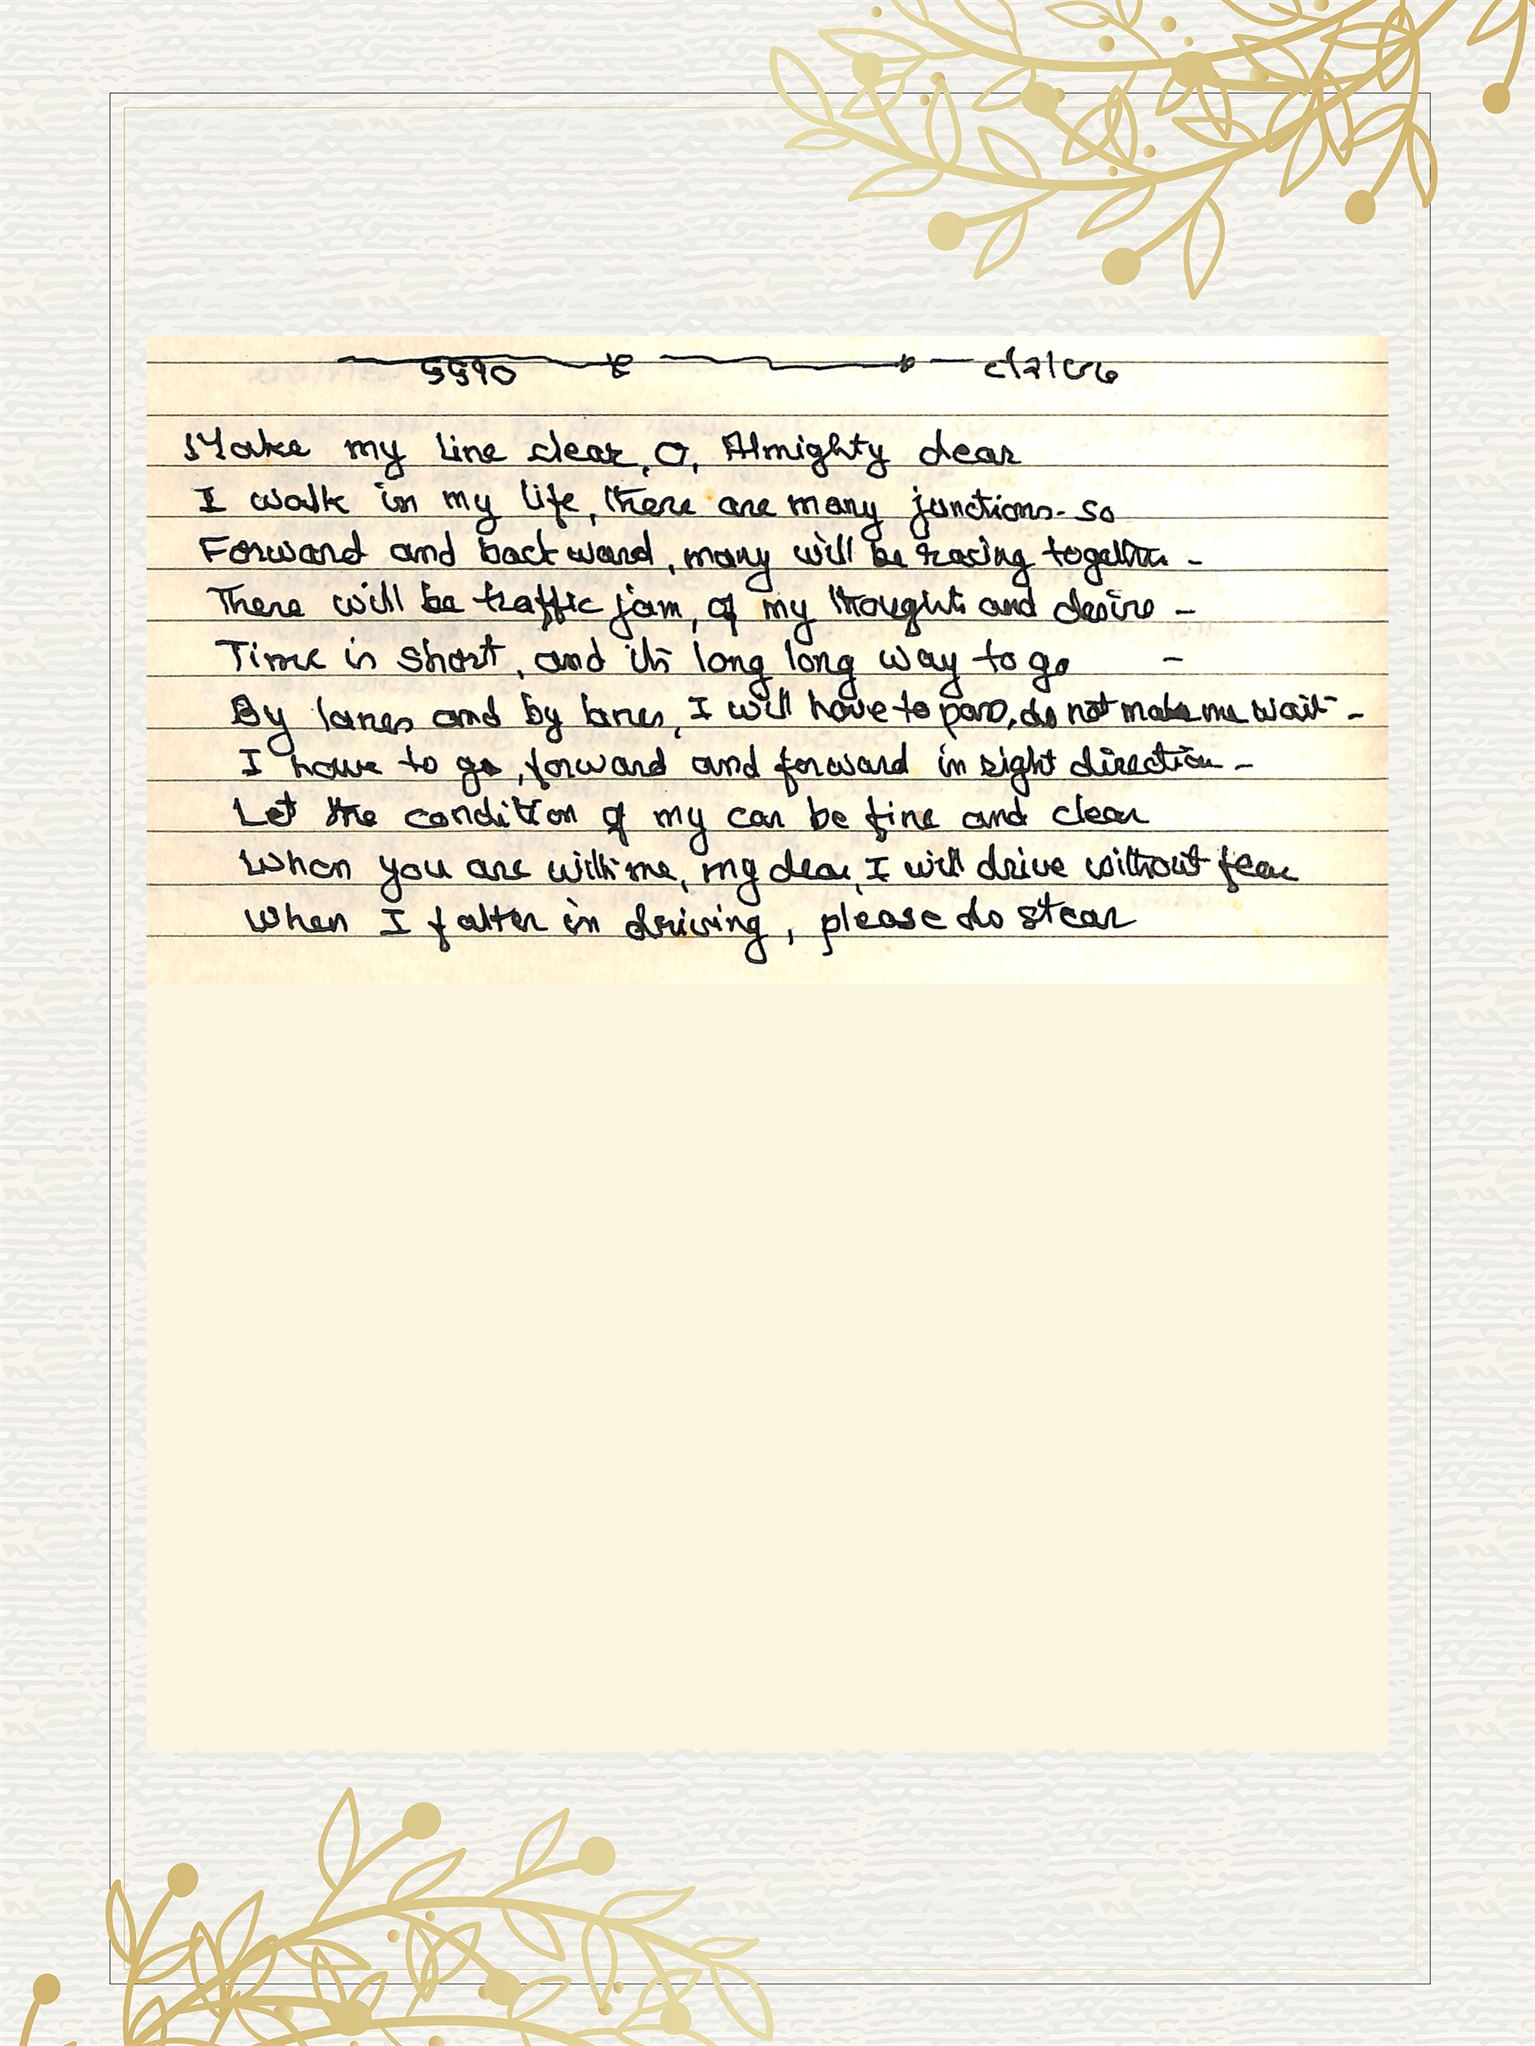 5590
Make my line clear, O, Almighty dear
I walk in my life, there are many junctions - so
Forward and backward, many will be racing together -
There will be traffic jam, of my thoughts and desire -
Time is short, and its long long way to go -
By lanes and by lanes, I will have to pass, do not make me wait -
I have to go, forward and forward in right direction -
Let the condition of my car be fine and clear
When you are with me, my dear, I will drive without fear
When I falter in driving, please do stear